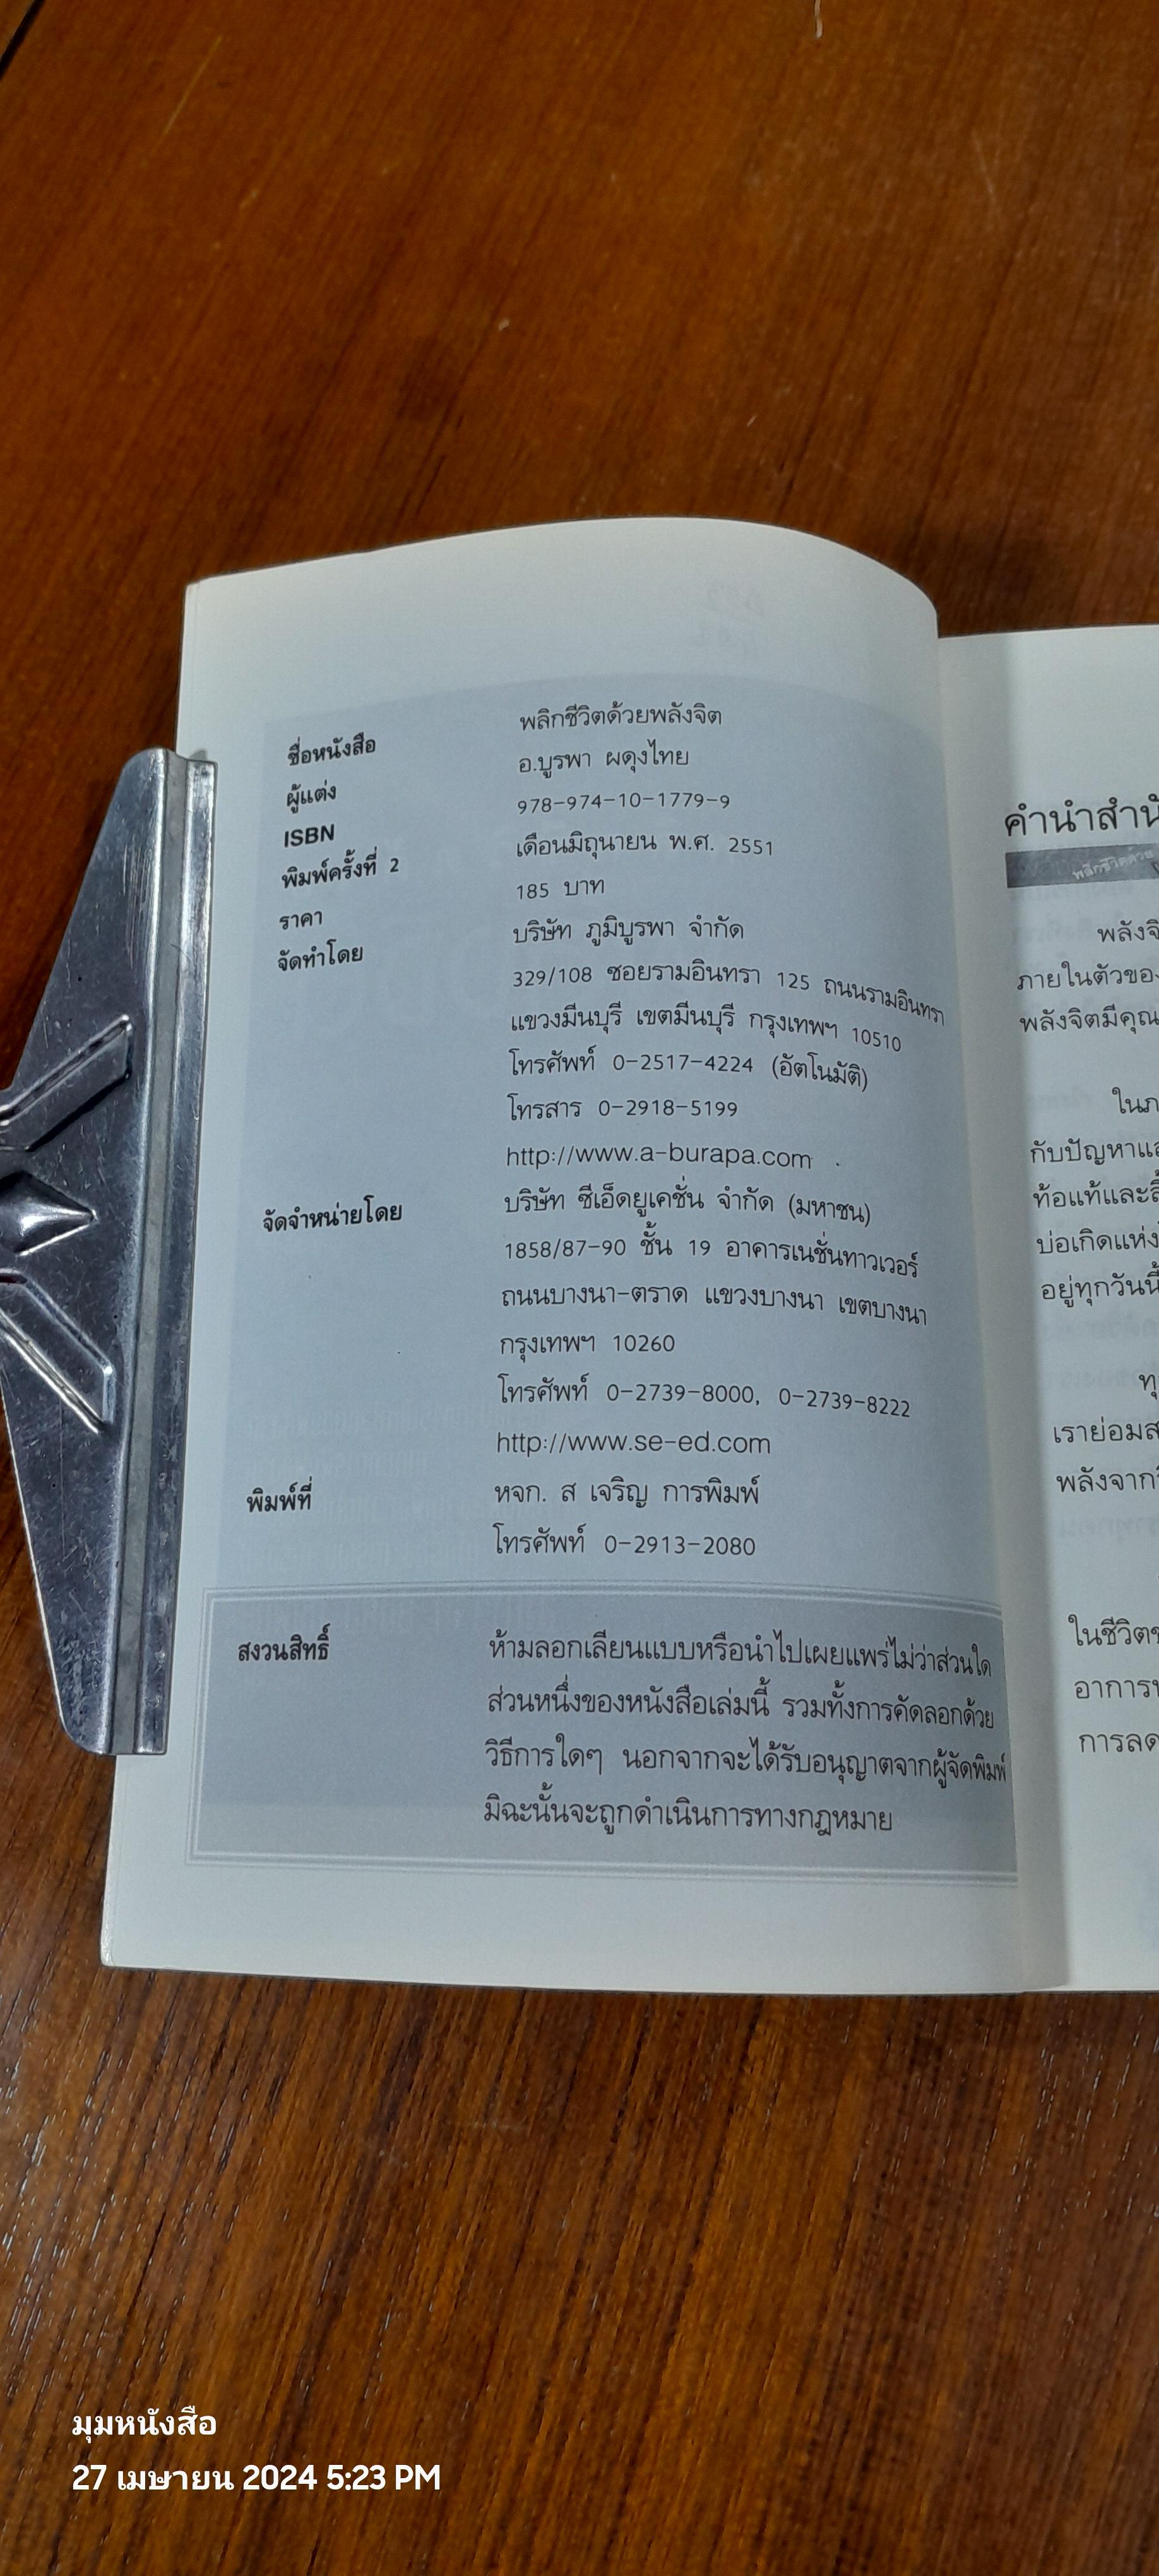 ชื่อหนังสือ พลิกชีวิตด้วยพลังจิต
ผู้แต่ง อ.บูรพา ผดุงไทย
ISBN 978-974-10-1779-9
พิมพ์ครั้งที่ 2 เดือนมิถุนายน พ.ศ. 2551
ราคา 185 บาท
จัดทำโดย บริษัท ภูมิบูรพา จำกัด
329/108 ซอยรามอินทรา 125 ถนนรามอินทรา
แขวงมีนบุรี เขตมีนบุรี กรุงเทพฯ 10510
โทรศัพท์ 0-2517-4224 (อัตโนมัติ)
โทรสาร 0-2918-5199
http://www.a-burapa.com
จัดจำหน่ายโดย บริษัท ซีเอ็ดยูเคชั่น จำกัด (มหาชน)
1858/87-90 ชั้น 19 อาคารเนชั่นทาวเวอร์
ถนนบางนา-ตราด แขวงบางนา เขตบางนา
กรุงเทพฯ 10260
โทรศัพท์ 0-2739-8000, 0-2739-8222
http://www.se-ed.com
พิมพ์ที่ หจก. ส เจริญ การพิมพ์
โทรศัพท์ 0-2913-2080
สงวนสิทธิ์ ห้ามลอกเลียนแบบหรือนำไปเผยแพร่ไม่ว่าส่วนใด
ส่วนหนึ่งของหนังสือเล่มนี้ รวมทั้งการคัดลอกด้วย
วิธีการใดๆ นอกจากจะได้รับอนุญาตจากผู้จัดพิมพ์
มิฉะนั้นจะถูกดำเนินการทางกฎหมาย
คำนำสำนั
พลิกชีวิตด้วย
พลังจิ
ภายในตัวของ
พลังจิตมีคุณ
ในภ
กับปัญหาแล
ท้อแท้และสิ้
บ่อเกิดแห่ง
อยู่ทุกวันนี้
ทุ
เราย่อมส
พลังจาก
ในชีวิตข
อาการ
การลด
มุมหนังสือ
27 เมษายน 2024 5:23 PM